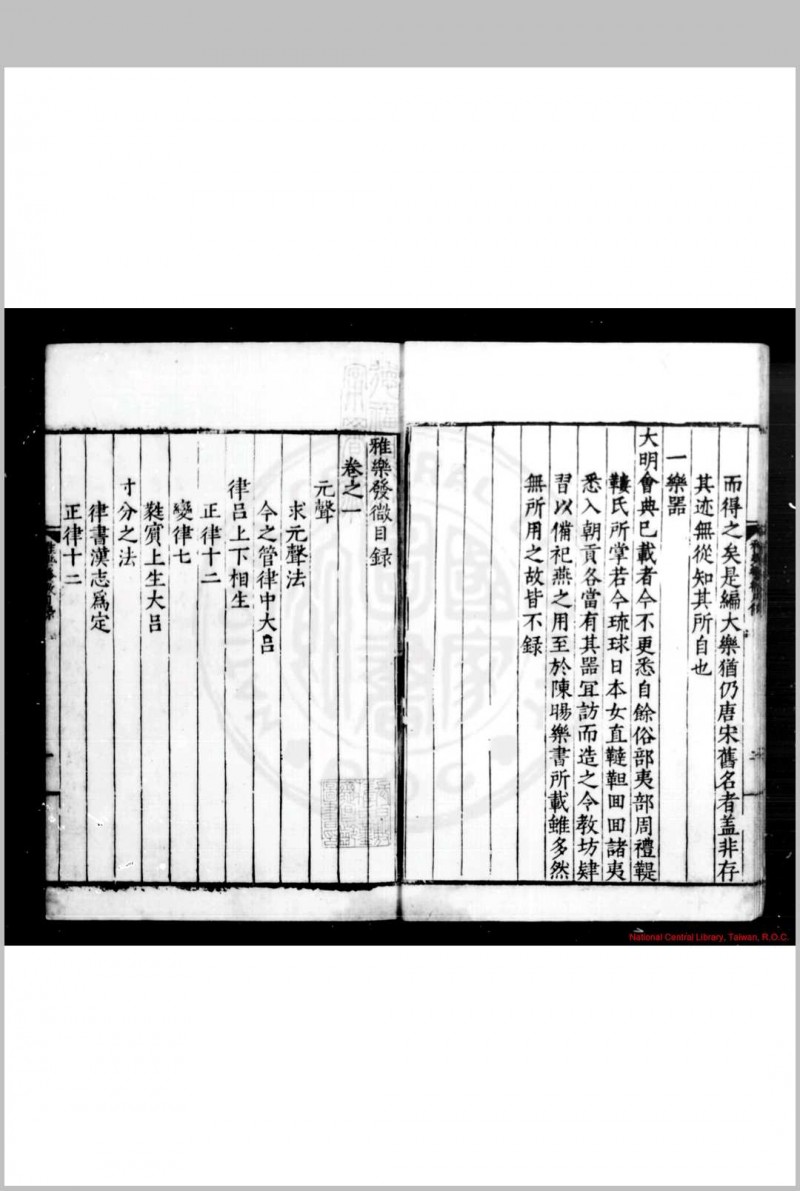 而得之矣是編大樂猶仍唐宋舊名者盖非存
其迹無從知其所自也
一樂器
大明會典已載者今不更悉自餘俗部夷部周禮鞮
鞻氏所掌若今琉球日本女直韃靼回回諸夷
悉入朝貢各當有其器冝訪而造之令教坊肄
習以備祀燕之用至於陳暘樂書所載雖多然
無所用之故皆不録
雅樂發微目録
卷之一
元聲
求元聲法
今之管律中大呂
律呂上下相生
正律十二
變律七
蕤賔上生大呂
寸分之法
律書漢志爲定
正律十二
National Central Library, Taiwan, R.O.C.